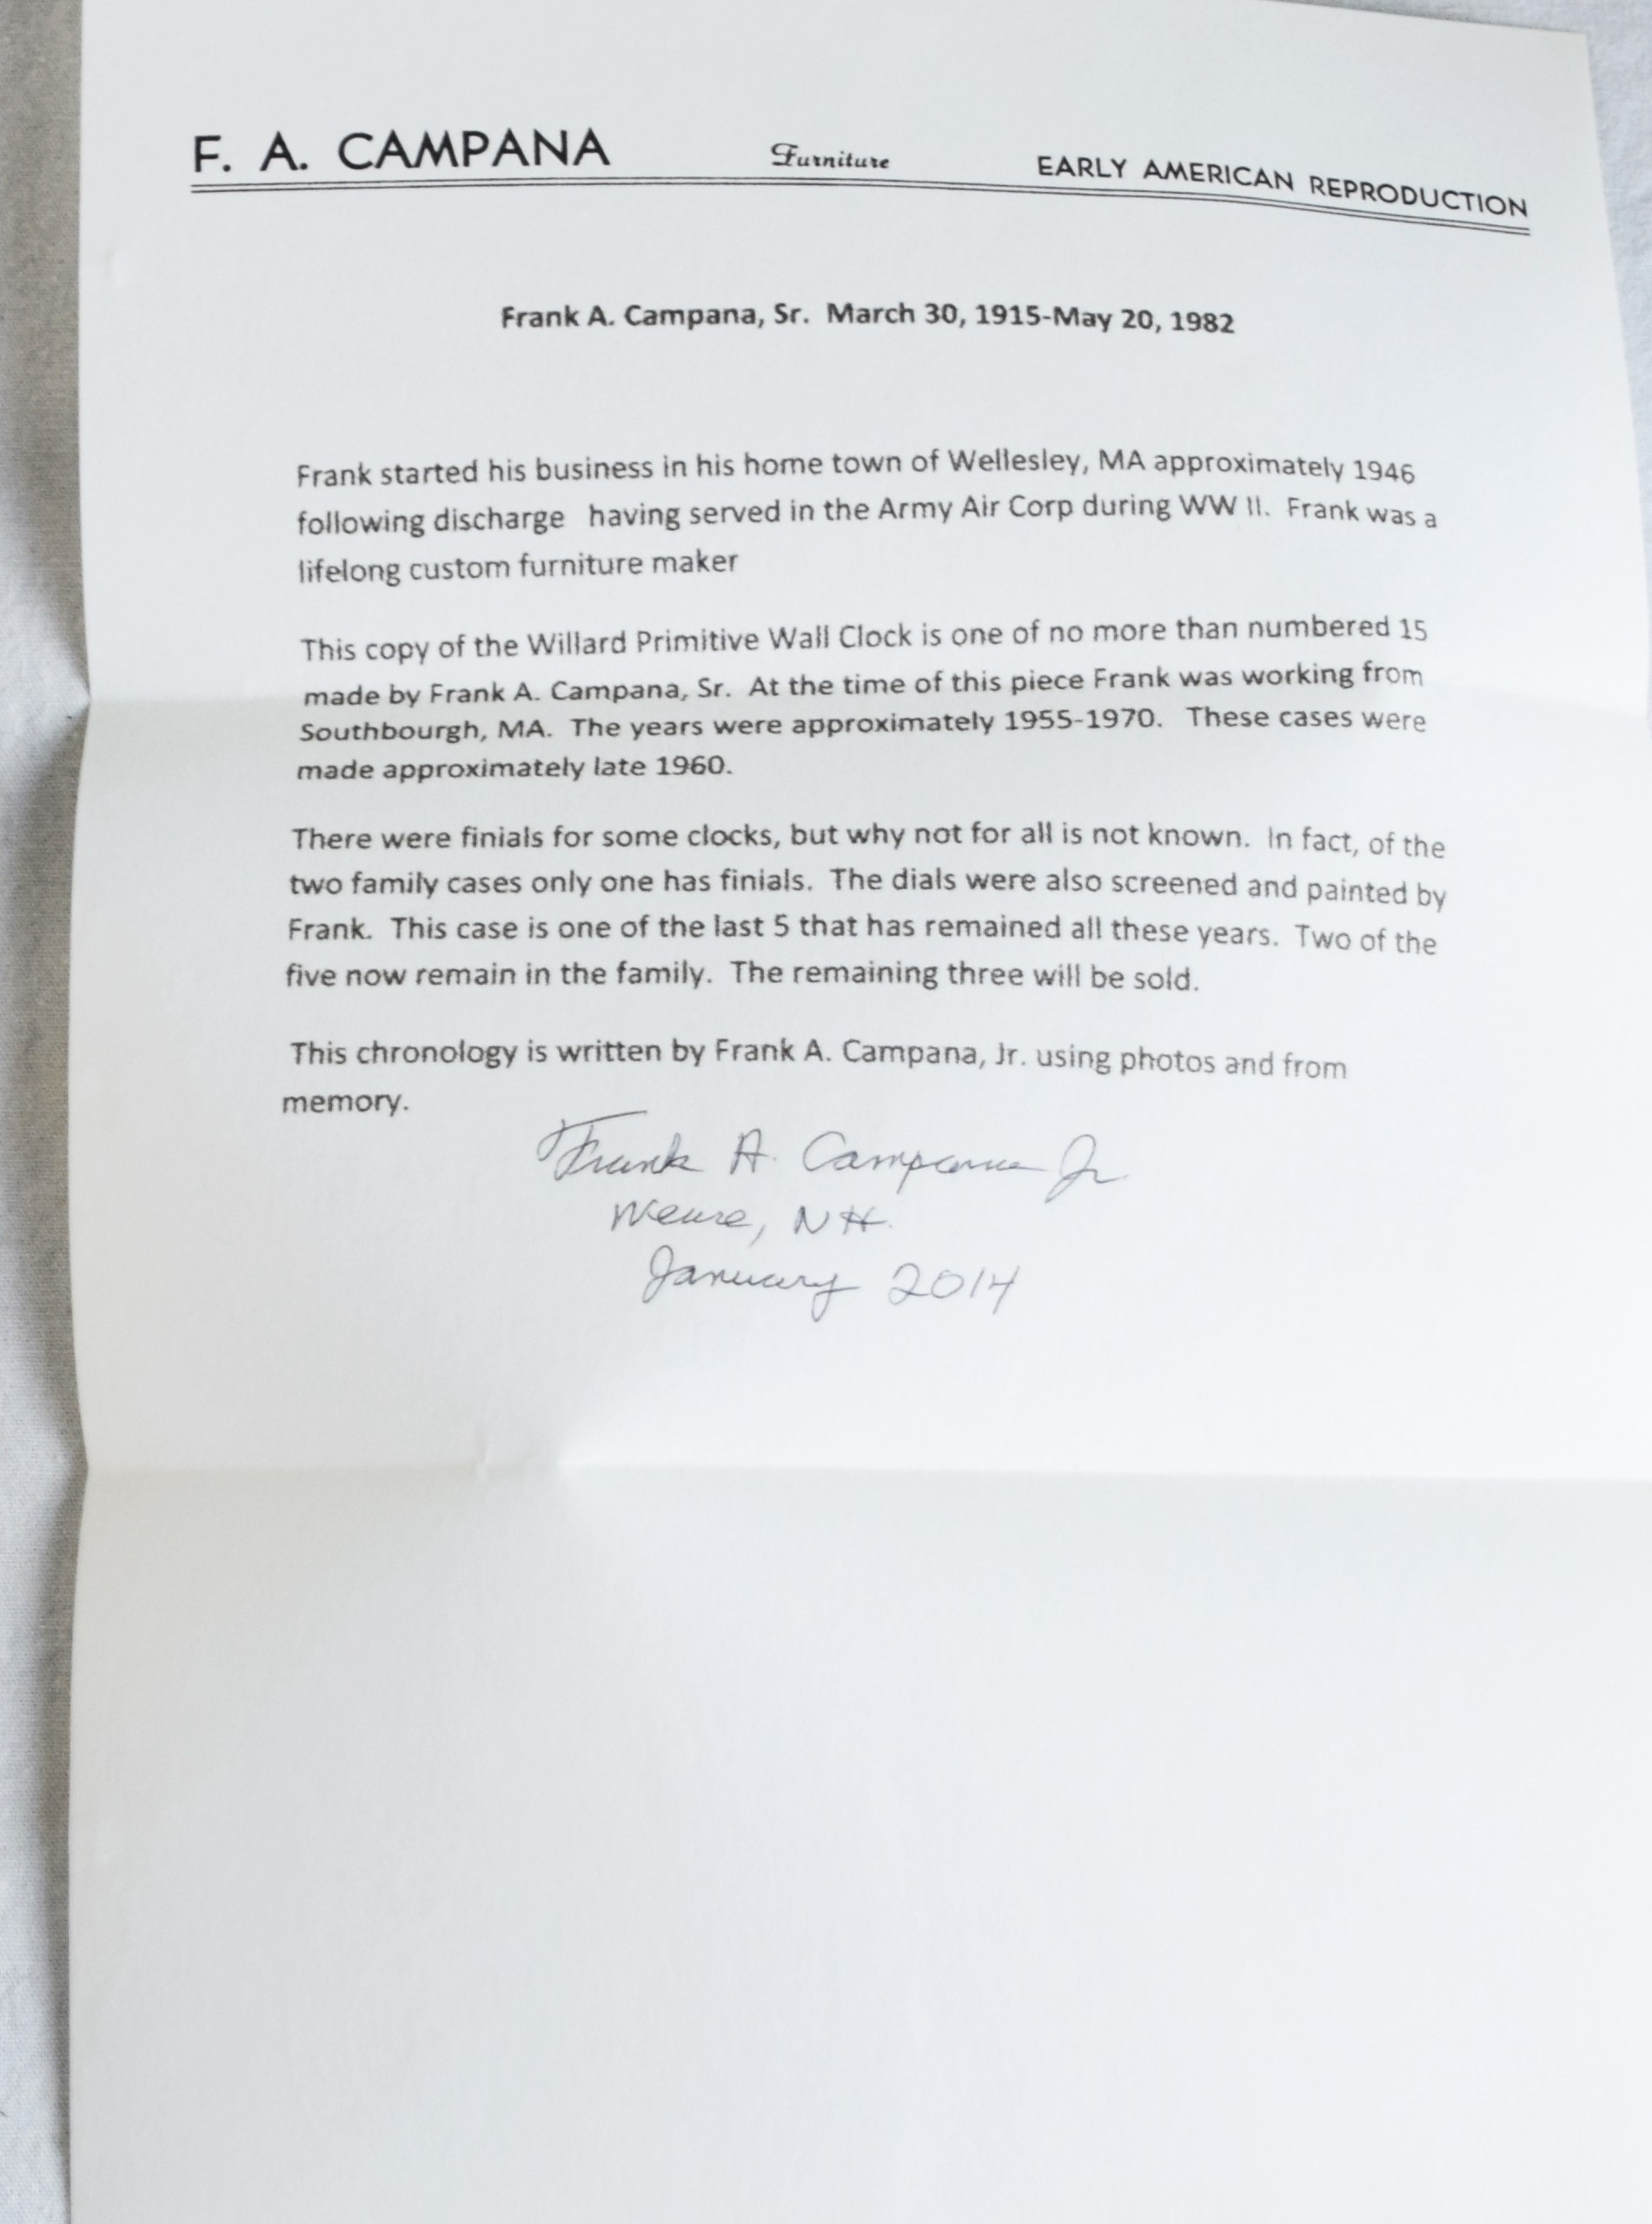 F. A. CAMPANA Furniture EARLY AMERICAN REPRODUCTION
Frank A. Campana, Sr. March 30, 1915-May 20, 1982
Frank started his business in his home town of Wellesley, MA approximately 1946
following discharge having served in the Army Air Corp during WW II. Frank was a
lifelong custom furniture maker
This copy of the Willard Primitive Wall Clock is one of no more than numbered 15
made by Frank A. Campana, Sr. At the time of this piece Frank was working from
Southbourgh, MA. The years were approximately 1955-1970. These cases were
made approximately late 1960.
There were finials for some clocks, but why not for all is not known. In fact, of the
two family cases only one has finials. The dials were also screened and painted by
Frank. This case is one of the last 5 that has remained all these years. Two of the
five now remain in the family. The remaining three will be sold.
This chronology is written by Frank A. Campana, Jr. using photos and from
memory.
Frank A. Campana Jr
Weare, NH.
January 2014